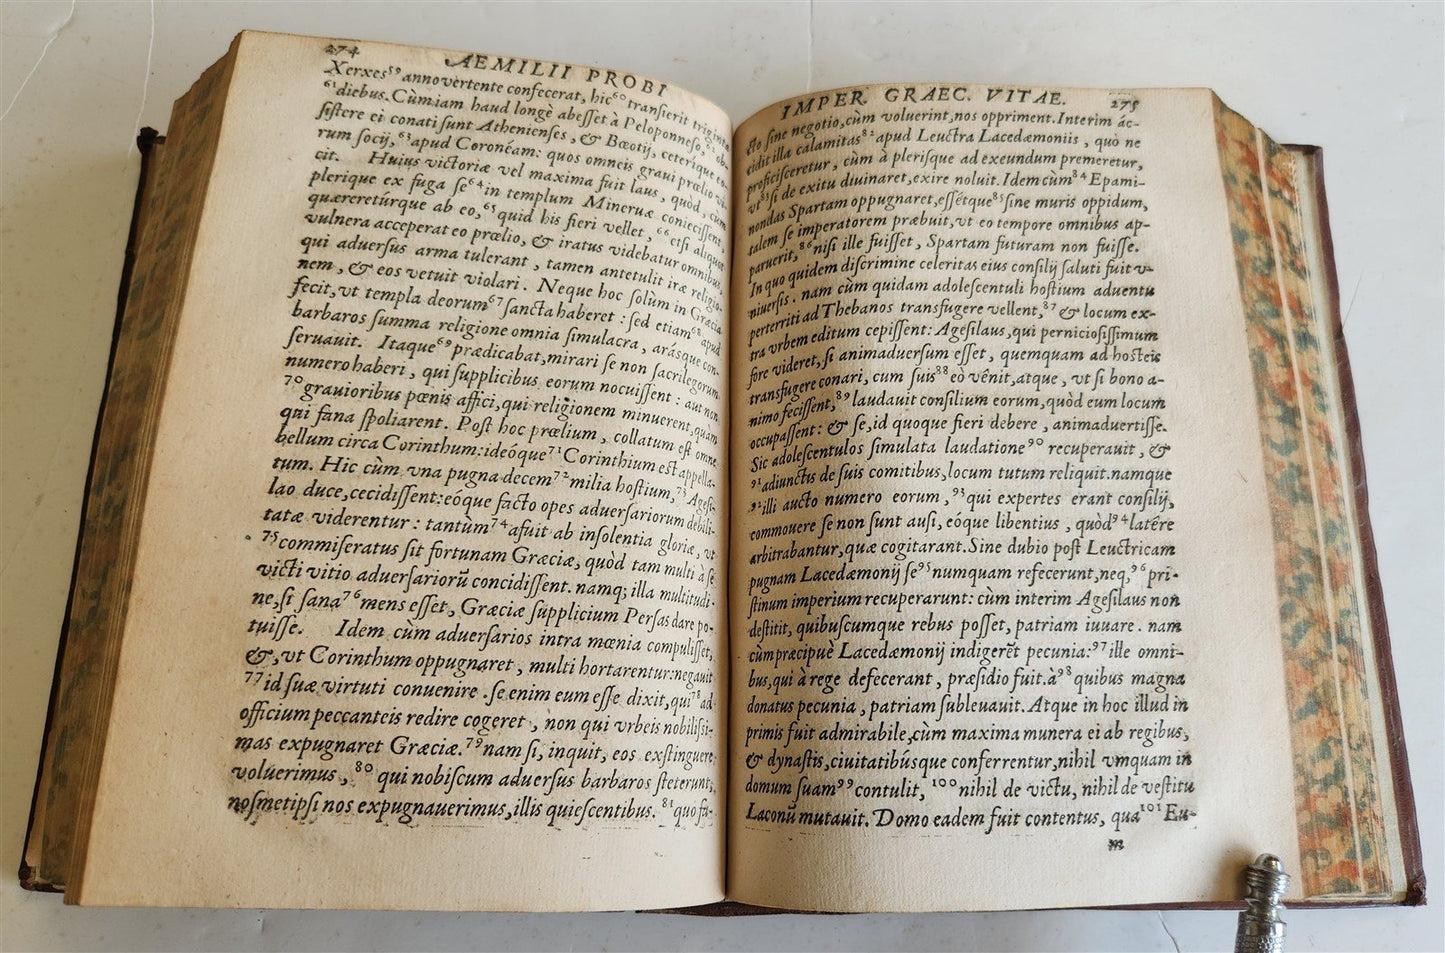 274
AEMILII PROBI
Xerxes⁵⁹ anno vertente confecerat, hic⁶⁰ transierit triginta
⁶¹diebus. Cùm iam haud longè abesset à Peloponneso,⁶² ob-
sistere ei conati sunt Athenienses, & Bœotij, ceterique eo-
rum socij, ⁶³apud Coronéam: quos omneis graui prœlio vi-
cit. Huius victoriæ vel maxima fuit laus, quòd, cùm
plerique ex fuga se⁶⁴in templum Mineruæ coniecissent,
quæreretúrque ab eo,⁶⁵quid his fieri vellet, ⁶⁶etsi aliquot
vulnera acceperat eo prœlio, & iratus videbatur omnibus,
qui aduersus arma tulerant, tamen antetulit iræ religio-
nem, & eos vetuit violari. Neque hoc solùm in Græcia
fecit, vt templa deorum⁶⁷sancta haberet: sed etiam⁶⁸apud
barbaros summa religione omnia simulacra, arásque con-
seruauit. Itaque⁶⁹prædicabat, mirari se non sacrilegorum
numero haberi, qui supplicibus eorum nocuissent: aut non
⁷⁰grauioribus pœnis affici, qui religionem minuerent, quàm
qui fana spoliarent. Post hoc prœlium, collatum est omne
bellum circa Corinthum: ideóque⁷¹Corinthium est appella-
tum. Hic cùm vna pugna decem⁷²milia hostium,⁷³Agesi-
lao duce, cecidissent: eóque facto opes aduersariorum debili-
tatæ viderentur: tantùm⁷⁴afuit ab insolentia gloriæ, vt
⁷⁵commiseratus sit fortunam Græciæ, quòd tam multi à se
victi vitio aduersariorū concidissent. namq; illa multitudi-
ne, si sana⁷⁶mens esset, Græciæ supplicium Persas dare po-
tuisse. Idem cùm aduersarios intra mœnia compulisset,
&, vt Corinthum oppugnaret, multi hortarentur: negauit
⁷⁷id suæ virtuti conuenire. se enim eum esse dixit, qui⁷⁸ad
officium peccanteis redire cogeret, non qui vrbeis nobilissi-
mas expugnaret Græciæ.⁷⁹nam si, inquit, eos exstinguere
voluerimus, ⁸⁰ qui nobiscum aduersus barbaros steterunt;
nosmetipsi nos expugnauerimus, illis quiescentibus. ⁸¹quo fa-
IMPER. GRAEC. VITAE. 275
cto sine negotio, cùm voluerint, nos oppriment. Interim ác-
cidit illa calamitas⁸²apud Leuctra Lacedæmoniis, quò ne
proficisceretur, cùm à plerisque ad exeundum premeretur,
vt⁸³si de exitu diuinaret, exire noluit. Idem cùm⁸⁴Epami-
nondas Spartam oppugnaret, essétque⁸⁵sine muris oppidum,
talem se imperatorem præbuit, vt eo tempore omnibus ap-
paruerit,⁸⁶nisi ille fuisset, Spartam futuram non fuisse.
In quo quidem discrimine celeritas eius consilij saluti fuit v-
niuersis. nam cùm quidam adolescentuli hostium aduentu
perterriti ad Thebanos transfugere vellent,⁸⁷& locum ex-
tra vrbem editum cepissent: Agesilaus, qui perniciosissimum
fore videret, si animaduersum esset, quemquam ad hosteis
transfugere conari, cum suis⁸⁸eò vēnit, atque, vt si bono a-
nimo fecissent,⁸⁹laudauit consilium eorum, quòd eum locum
occupassent: & se, id quoque fieri debere, animaduertisse.
Sic adolescentulos simulata laudatione⁹⁰ recuperauit, &
⁹¹adiunctis de suis comitibus, locum tutum reliquit. namque
⁹²illi aucto numero eorum, ⁹³qui expertes erant consilij,
commouere se non sunt ausi, eóque libentius, quòd⁹⁴latēre
arbitrabantur, quæ cogitarant. Sine dubio post Leuctricam
pugnam Lacedæmonij se⁹⁵numquam refecerunt, neq,⁹⁶pri-
stinum imperium recuperarunt: cùm interim Agesilaus non
destitit, quibuscumque rebus posset, patriam iuuare. nam
cùm præcipuè Lacedæmonij indigerēt pecunia:⁹⁷ille omni-
bus, qui à rege defecerant, præsidio fuit. à⁹⁸quibus magna
donatus pecunia, patriam subleuauit. Atque in hoc illud in
primis fuit admirabile, cùm maxima munera ei ab regibus,
& dynastis, ciuitatibúsque conferrentur, nihil vmquam in
domum suam⁹⁹contulit, ¹⁰⁰nihil de victu, nihil de vestitu
Laconū mutauit. Domo eadem fuit contentus, qua¹⁰¹Eu-
m